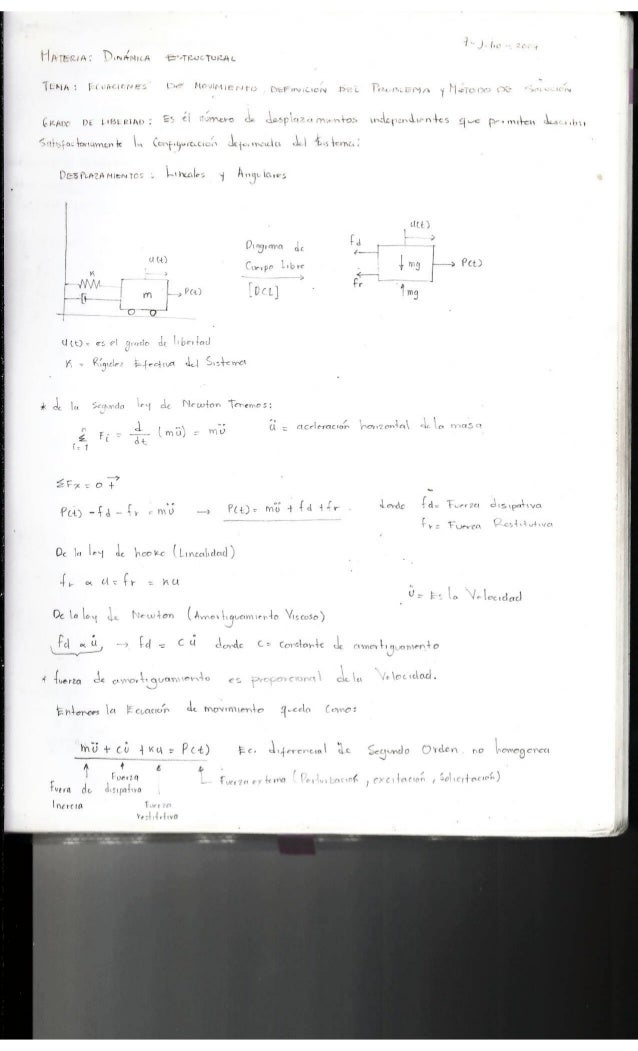 7-Julio-2009
MATERIA: DINÁMICA ESTRUCTURAL
TEMA: ECUACIONES DE MOVIMIENTO, DEFINICIÓN DEL PROBLEMA y MÉTODO DE SOLUCIÓN
GRADO DE LIBERTAD: Es él número de desplazamientos independientes que permiten describir
Satisfactoriamente la Configuración deformada del Sistema:
DESPLAZAMIENTOS: Lineales y Angulares
u(t)
K
m
P(t)
Diagrama de
Cuerpo Libre
[DCL]
u(t)
fd
fr
mg
P(t)
mg
u(t) = es el grado de libertad
K = Rigidez Efectiva del Sistema
* de la Segunda ley de Newton Tenemos:
n Σ i=1 Fi = d/dt (mü) = mü   ü = aceleración horizontal de la masa
ΣFx = 0 +→
P(t) - fd - fr = mü → P(t) = mü + fd + fr . donde fd = Fuerza disipativa
fr = Fuerza Restitutiva
De la ley de hooke (Linealidad)
fr ∝ u = fr = ku
ü = Es la Velocidad
De la ley de Newton (Amortiguamiento Viscoso)
fd ∝ u̇, → fd = C u̇ donde C = Constante de amortiguamiento
* fuerza de amortiguamiento es proporcional de la Velocidad.
Entonces la Ecuación de movimiento queda Como:
mü + cu̇ + ku = P(t)   Ec. diferencial de Segundo Orden no homogenea
Fuerza de Inercia
Fuerza disipativa
Fuerza restitutiva
Fuerza externa (Perturbación, excitación, Solicitación)